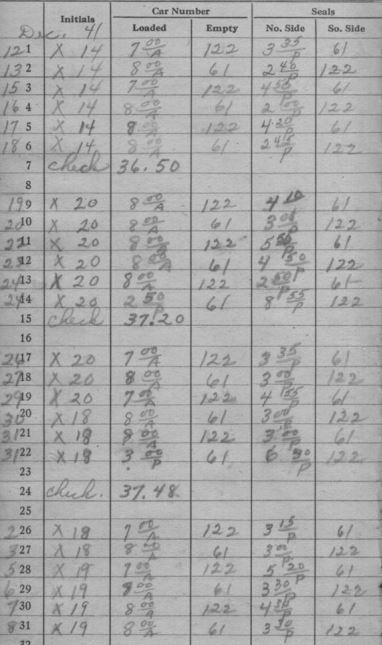 Initials Car Number Seals
Dec. 41 Loaded Empty No. Side So. Side
12 1 X 14 7 00/A 122 3 35/P 61
13 2 X 14 8 00/A 61 2 40/P 122
15 3 X 14 7 00/A 122 4 55/P 61
16 4 X 14 8 00/A 61 2 00/P 122
17 5 X 14 8 00/A 122 4 20/P 61
18 6 X 14 8 00/A 61 2 45/P 122
7 check 36.50
8
19 9 X 20 8 00/A 122 4 10 61
20 10 X 20 8 00/A 61 3 00/P 122
22 11 X 20 8 00/A 122 5 50/P 61
23 12 X 20 8 00/A 61 4 50/P 122
24 13 X 20 8 00/A 122 2 50/P 61
24 14 X 20 2 50/P 61 8 55/P 122
15 check 37.20
16
26 17 X 20 7 00/A 122 3 35/P 61
27 18 X 20 8 00/A 61 3 00/P 122
29 19 X 20 7 00/A 122 4 55/P 61
30 20 X 18 8 00/A 61 3 00/P 122
31 21 X 18 8 00/A 122 3 00/P 61
31 22 X 18 3 00/P 61 6 30/P 122
23
24 check. 37.48
25
2 26 X 18 7 00/A 122 3 15/P 61
3 27 X 18 8 00/A 61 3 00/P 122
5 28 X 19 7 00/A 122 5 20/P 61
6 29 X 19 8 00/A 61 3 30/P 122
7 30 X 19 8 00/A 122 4 30/P 61
8 31 X 19 8 00/A 61 3 30/P 122
32